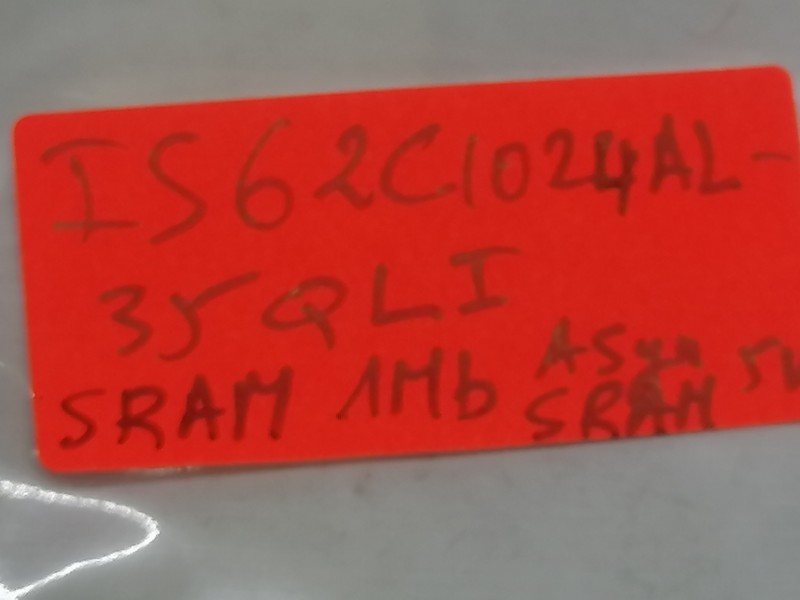 IS62C1024AL-
35QLI
SRAM 1Mb ASyn 5V
SRAM